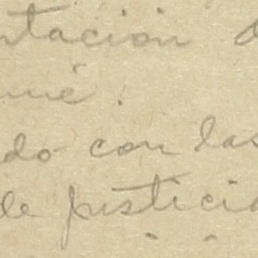 ntación d
mé.
do con las
de justicia